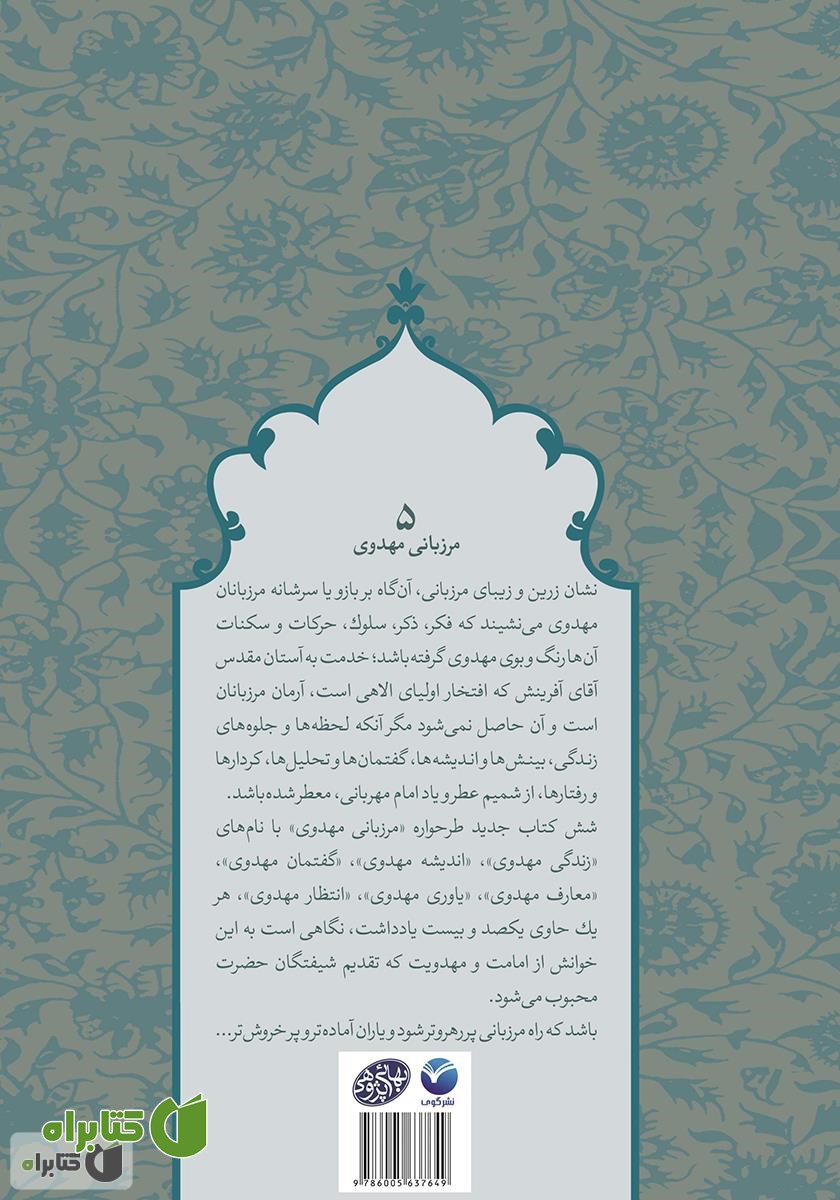 ۵
مرزبانی مهدوی
نشان زرین و زیبای مرزبانی، آن‌گاه بر بازو یا سرشانه مرزبانان
مهدوی می‌نشیند که فکر، ذکر، سلوك، حرکات و سکنات
آن‌ها رنگ و بوی مهدوی گرفته باشد؛ خدمت به آستان مقدس
آقای آفرینش که افتخار اولیای الاهی است، آرمان مرزبانان
است و آن حاصل نمی‌شود مگر آنکه لحظه‌ها و جلوه‌های
زندگی، بینش‌ها و اندیشه‌ها، گفتمان‌ها و تحلیل‌ها، کردارها
و رفتارها، از شمیم عطر و یاد امام مهربانی، معطر شده باشد.
شش کتاب جدید طرحواره «مرزبانی مهدوی» با نام‌های
«زندگی مهدوی»، «اندیشه مهدوی»، «گفتمان مهدوی»،
«معارف مهدوی»، «یاوری مهدوی»، «انتظار مهدوی»، هر
یك حاوی یکصد و بیست یادداشت، نگاهی است به این
خوانش از امامت و مهدویت که تقدیم شیفتگان حضرت
محبوب می‌شود.
باشد که راه مرزبانی پر رهروتر شود و یاران آماده‌تر و پرخروش‌تر...
بهائی پژوهی
نشر گوی
9 786005 637649
کتابراه
کتابراه